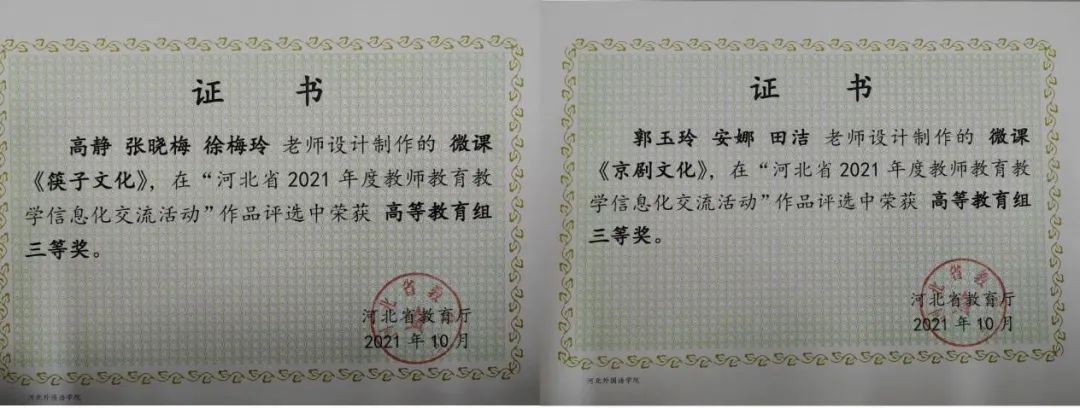 证 书
高静 张晓梅 徐梅玲 老师设计制作的 微课
《筷子文化》，在“河北省 2021 年度教师教育教
学信息化交流活动”作品评选中荣获 高等教育组
三等奖。
河北省教育厅
2021 年 10 月
河北外国语学院
证 书
郭玉玲 安娜 田洁 老师设计制作的 微课
《京剧文化》，在“河北省 2021 年度教师教育教
学信息化交流活动”作品评选中荣获 高等教育组
三等奖。
河北省教育厅
2021 年 10 月
河北外国语学院